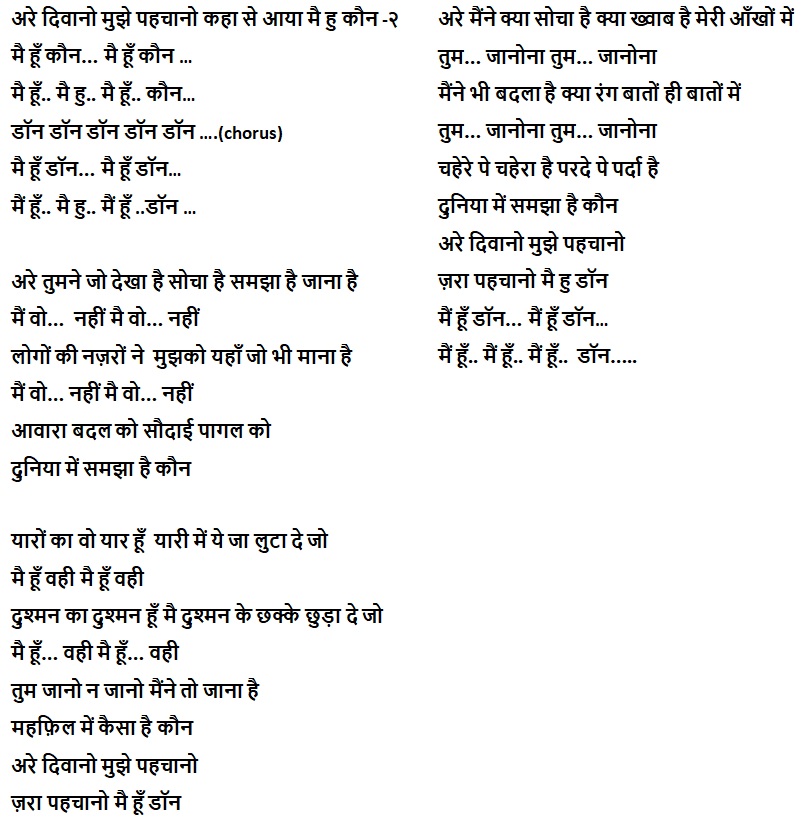 अरे दिवानो मुझे पहचानो कहा से आया मै हु कौन -२
मै हूँ कौन... मै हूँ कौन ...
मै हूँ.. मै हु.. मै हूँ.. कौन...
डॉन डॉन डॉन डॉन डॉन ....(chorus)
मै हूँ डॉन... मै हूँ डॉन...
मैं हूँ.. मै हु.. मैं हूँ ..डॉन ...
अरे तुमने जो देखा है सोचा है समझा है जाना है
मैं वो... नहीं मै वो... नहीं
लोगों की नज़रों ने मुझको यहाँ जो भी माना है
मैं वो... नहीं मै वो... नहीं
आवारा बदल को सौदाई पागल को
दुनिया में समझा है कौन
यारों का वो यार हूँ यारी में ये जा लुटा दे जो
मै हूँ वही मै हूँ वही
दुश्मन का दुश्मन हूँ मै दुश्मन के छक्के छुड़ा दे जो
मै हूँ... वही मै हूँ... वही
तुम जानो न जानो मैंने तो जाना है
महफ़िल में कैसा है कौन
अरे दिवानो मुझे पहचानो
ज़रा पहचानो मै हूँ डॉन
अरे मैंने क्या सोचा है क्या ख्वाब है मेरी आँखों में
तुम... जानोना तुम... जानोना
मैंने भी बदला है क्या रंग बातों ही बातों में
तुम... जानोना तुम... जानोना
चहेरे पे चहेरा है परदे पे पर्दा है
दुनिया में समझा है कौन
अरे दिवानो मुझे पहचानो
ज़रा पहचानो मै हु डॉन
मैं हूँ डॉन... मैं हूँ डॉन...
मैं हूँ.. मैं हूँ.. मैं हूँ.. डॉन.....